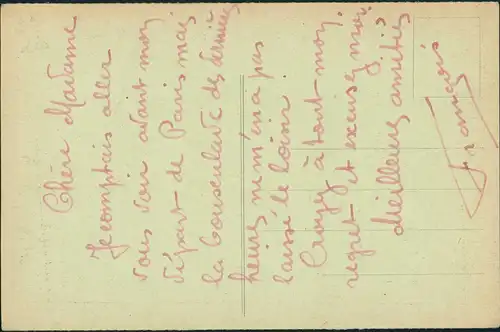 Chère Madame
Je comptais aller
vous voir avant mon
départ de Paris mais
la bousculade des dernières
heures ne m'en a pas
laissé le loisir.
Croyez à tout mon
regret et excusez moi.
Meilleures amitiés